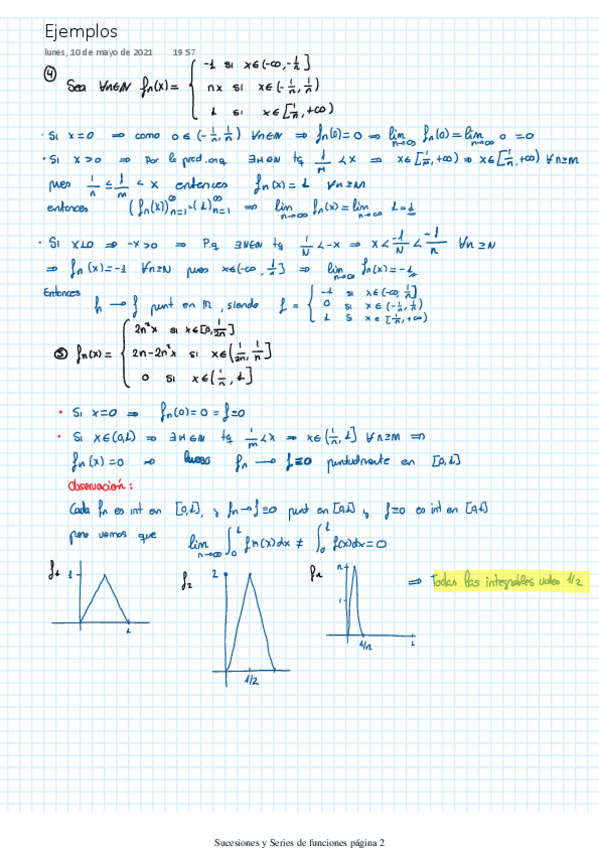 Ejemplos
lunes, 10 de mayo de 2021 19:57
④ Sea ∀n∈N fn(x) = { -1 si x∈(-∞, -1/n]
nx si x∈(-1/n, 1/n)
1 si x∈[1/n, +∞)
· Si x=0 ⇒ como 0∈(-1/n, 1/n) ∀n∈N ⇒ fn(0)=0 ⇒ lim n→∞ fn(0) = lim n→∞ 0 = 0
· Si x>0 ⇒ Por la prop. arq ∃M∈N tq 1/M < x ⇒ x∈[1/M, +∞) ⇒ x∈[1/n, +∞) ∀n≥M
pues 1/n ≤ 1/M < x entonces fn(x)=1 ∀n≥M
entonces (fn(x))∞n=1 = (1)∞n=1 ⇒ lim n→∞ fn(x) = lim n→∞ 1 = 1
· Si x<0 ⇒ -x>0 ⇒ P.a ∃N∈N tq 1/N < -x ⇒ x < -1/N < -1/n ∀n≥N
⇒ fn(x)=-1 ∀n≥N pues x∈(-∞, 1/n] ⇒ lim n→∞ fn(x)=-1
Entonces
fn → f punt en R, siendo f = { -1 si x∈(-∞, 1/n]
0 si x∈(-1/n, 1/n)
1 si x∈[1/n, +∞)
⑤ fn(x) = { 2n²x si x∈[0, 1/2n]
2n-2n²x si x∈(1/2n, 1/n]
0 si x∈(1/n, 1]
· Si x=0 ⇒ fn(0)=0=f=0
· Si x∈(0,1) ⇒ ∃M∈N tq 1/M < x ⇒ x∈(1/n, 1] ∀n≥M ⇒
fn(x)=0 ⇒ luego fn → f≡0 puntualmente en [0,1]
Observación:
Cada fn es int en [0,1], y fn→f≡0 punt en [0,1] y f=0 es int en [0,1]
pero vemos que lim n→∞ ∫₀¹ fn(x)dx ≠ ∫₀¹ f(x)dx=0
f1 1 1
f2 2 1/2
fn n 1/n 1
⇒ Todas las integrables valen 1/2
Sucesiones y Series de funciones página 2